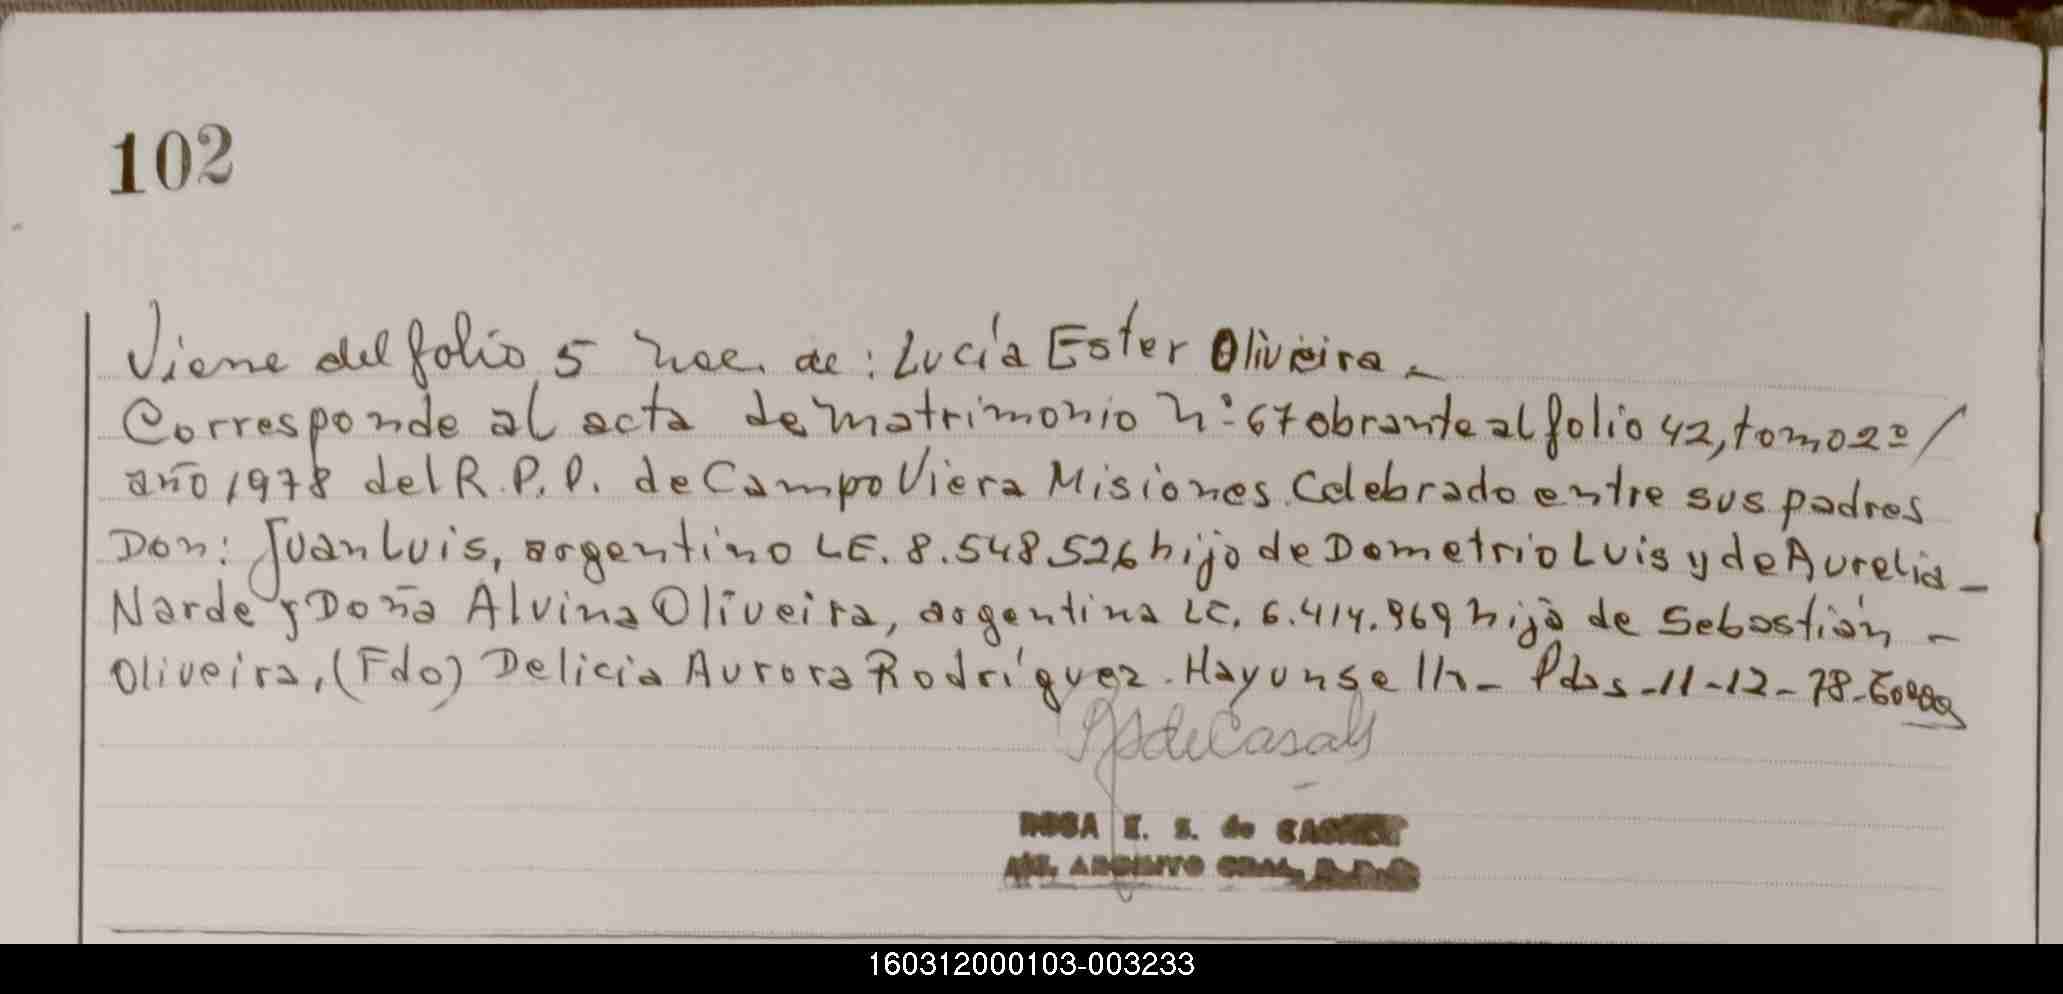 102
Viene del folio 5 nac. de: Lucía Ester Oliveira.
Corresponde al acta de matrimonio n° 67 obrante al folio 42, tomo 2º /
año 1978 del R.P.P. de Campo Viera Misiones. Celebrado entre sus padres
Don: Juan Luis, argentino L.E. 8.548.526 hijo de Demetrio Luis y de Aurelia -
Narde y Doña Alvina Oliveira, argentina LC. 6.414.969 hija de Sebastián -
Oliveira, (Fdo) Delicia Aurora Rodríguez. Hay un sello - Pdas - 11-12-78-
de Casals
ROSA E. S. de
ARCHIVO GRAL.
160312000103-003233